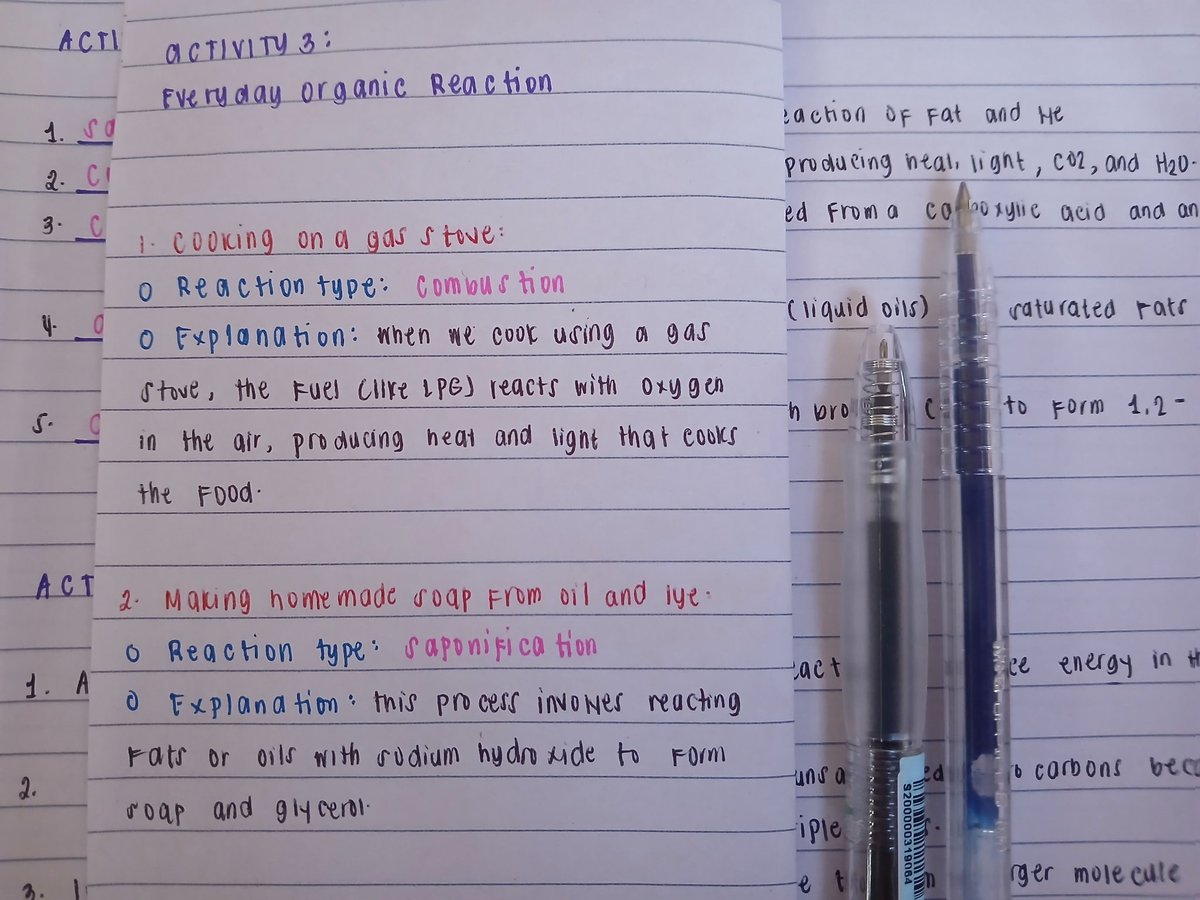 ACTIVITY 3:
Everyday Organic Reaction
1. Cooking on a gas stove:
o Reaction type: Combustion
o Explanation: when we cook using a gas
stove, the fuel (like LPG) reacts with oxygen
in the air, producing heat and light that cooks
the food.
2. Making homemade soap from oil and lye.
o Reaction type: Saponification
o Explanation: this process involves reacting
fats or oils with sodium hydroxide to form
soap and glycerol.
ACTI
1. Sa
2. C
3. C
4.
5.
ACT
1. A
2.
3. I
eaction of fat and He
producing heat, light, CO2, and H2O.
ed from a carboxylic acid and an
(liquid oils) saturated fats
h bro C to form 1,2-
eact ce energy in th
unsa ed o carbons beca
iple s.
e t n rger molecule
S200000319064